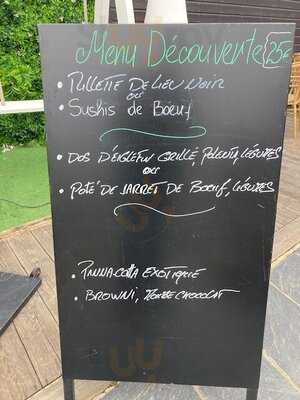 Menu Découverte 25€
• Rillette de Lieu Noir
ou
• Sushis de Boeuf
• Dos d'Eiglefin Grillé, Polenta, Légumes
ou
• Poté de Jarret de Boeuf, Légumes
• Pannacotta Exotique
• Browni, Chocolat